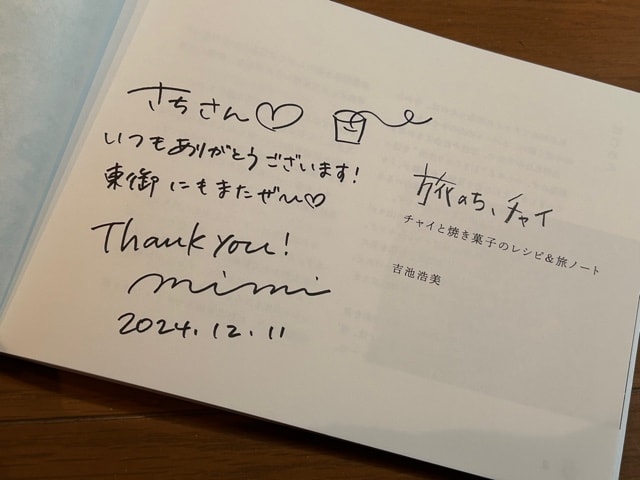 さちさん♡
いつもありがとうございます!
東御にもまたぜひ〜♡
Thank you!
mimi
2024.12.11
旅のち、チャイ
チャイと焼き菓子のレシピ&旅ノート
吉池浩美